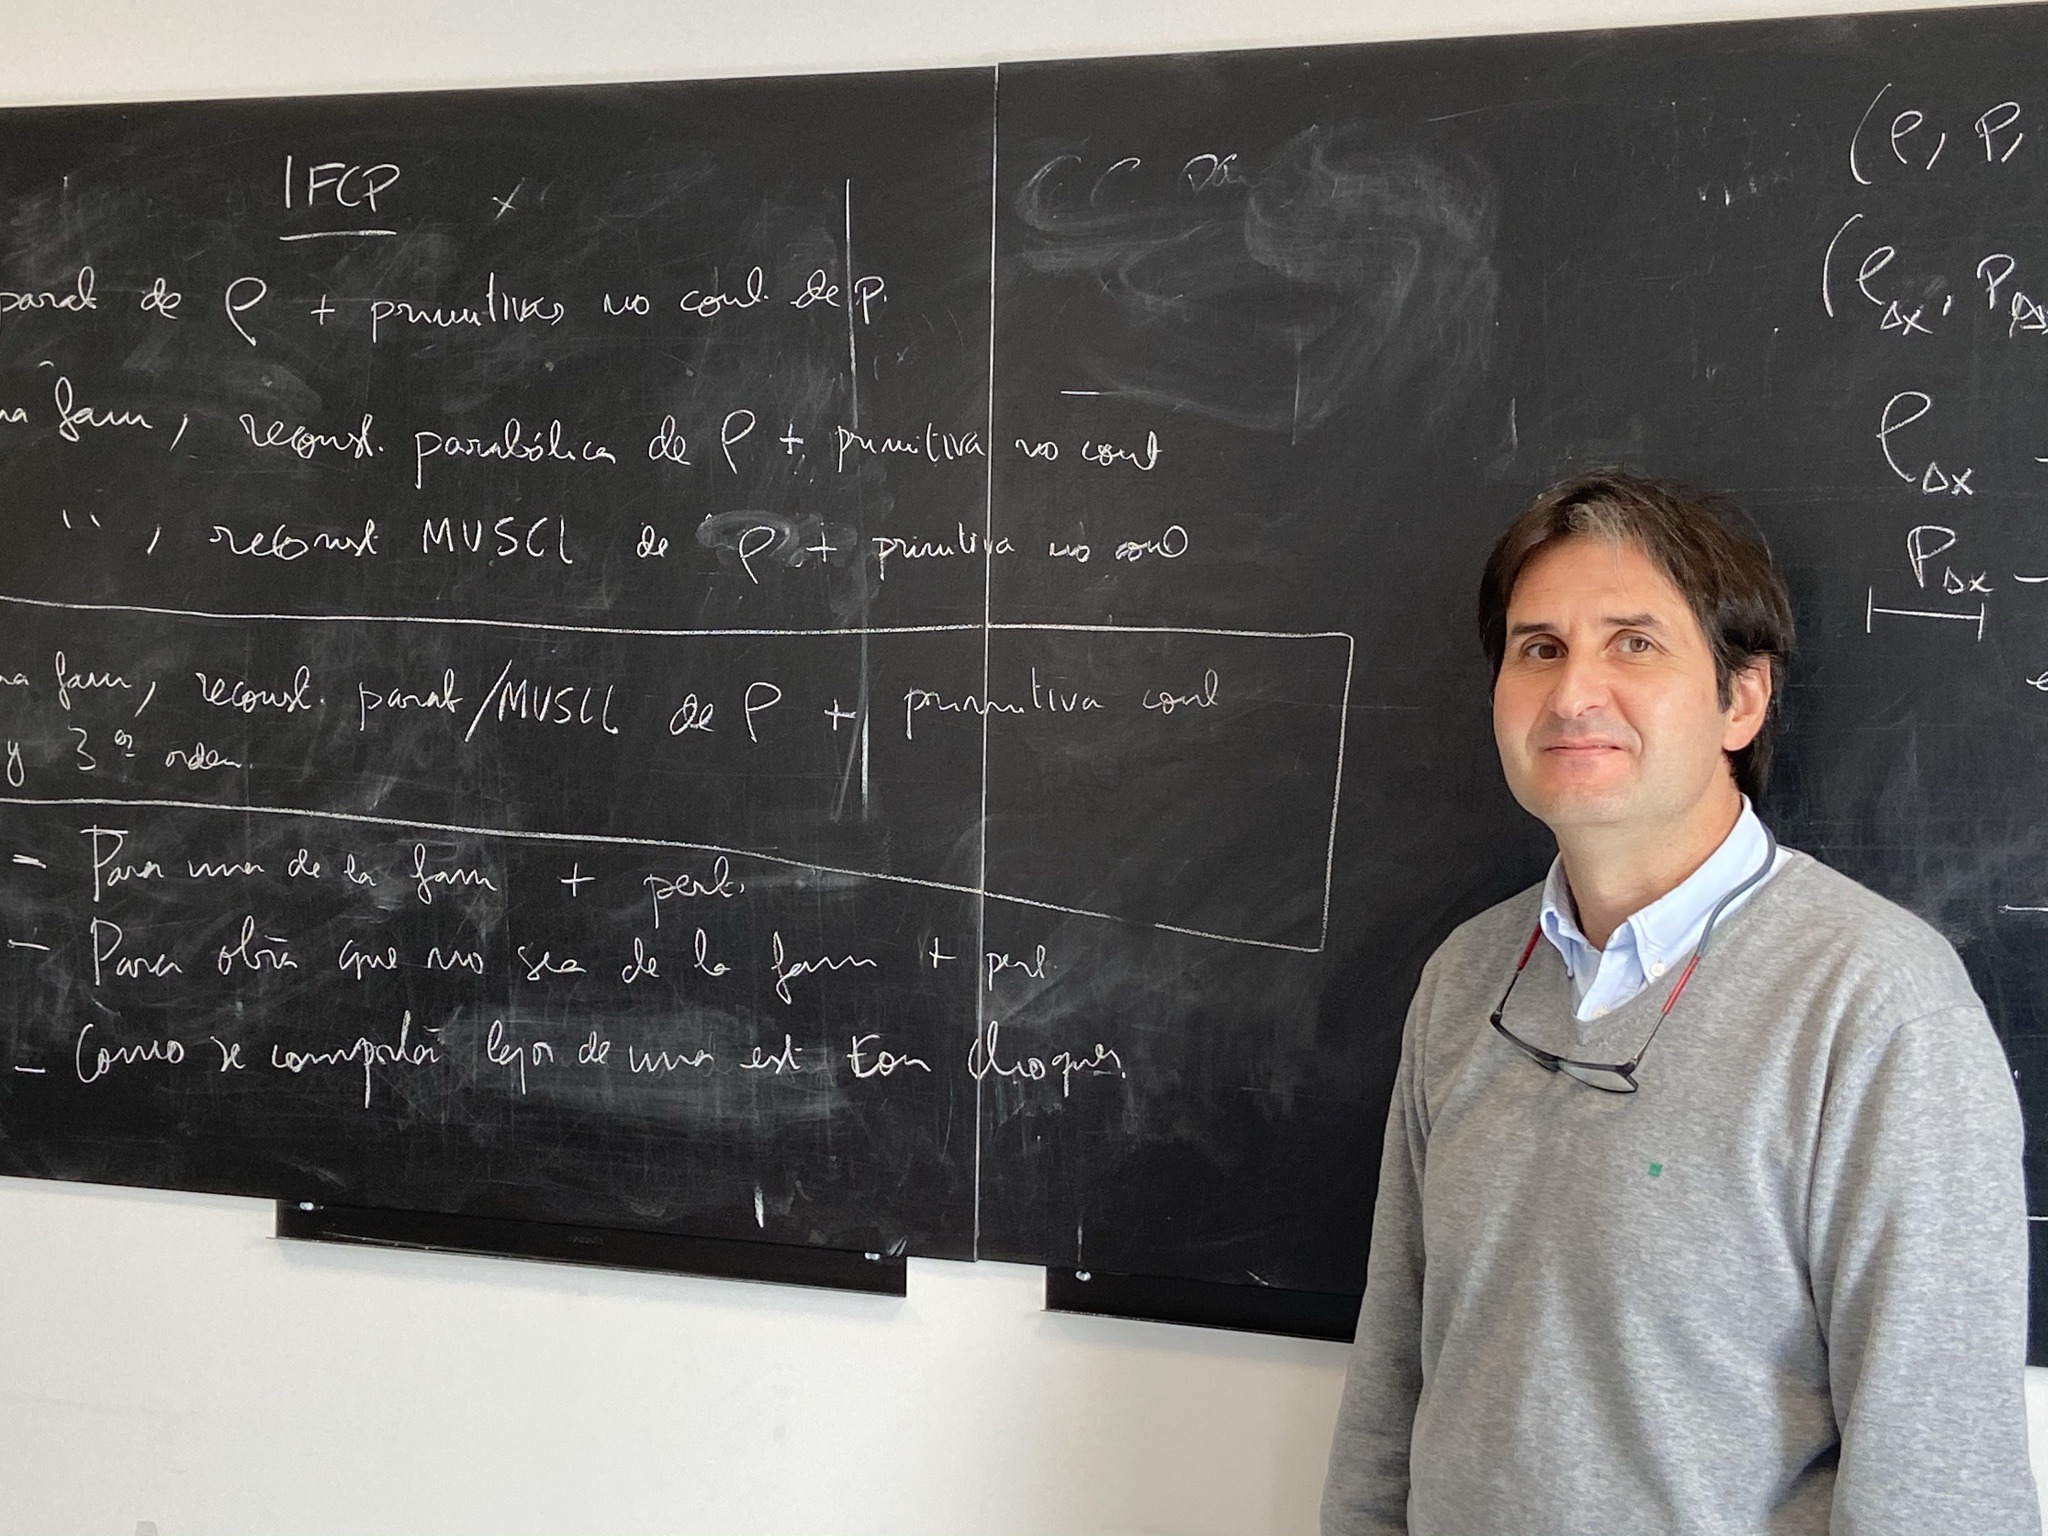 IFCP x
parab de ρ + primitivas no cont. de p.
na fam, reconst. parabólica de ρ + primitiva no cont
'' , reconst MUSCL de ρ + primitiva no cont
na fam, reconst. parab/MUSCL de ρ + primitiva cont
y 3er orden.
- Para una de la fam + pert.
- Para otra que no sea de la fam + pert.
- Como se comporta lejos de una est con choques.
CC
(ρ, P,
(ρΔx, PΔx
ρΔx -
PΔx -